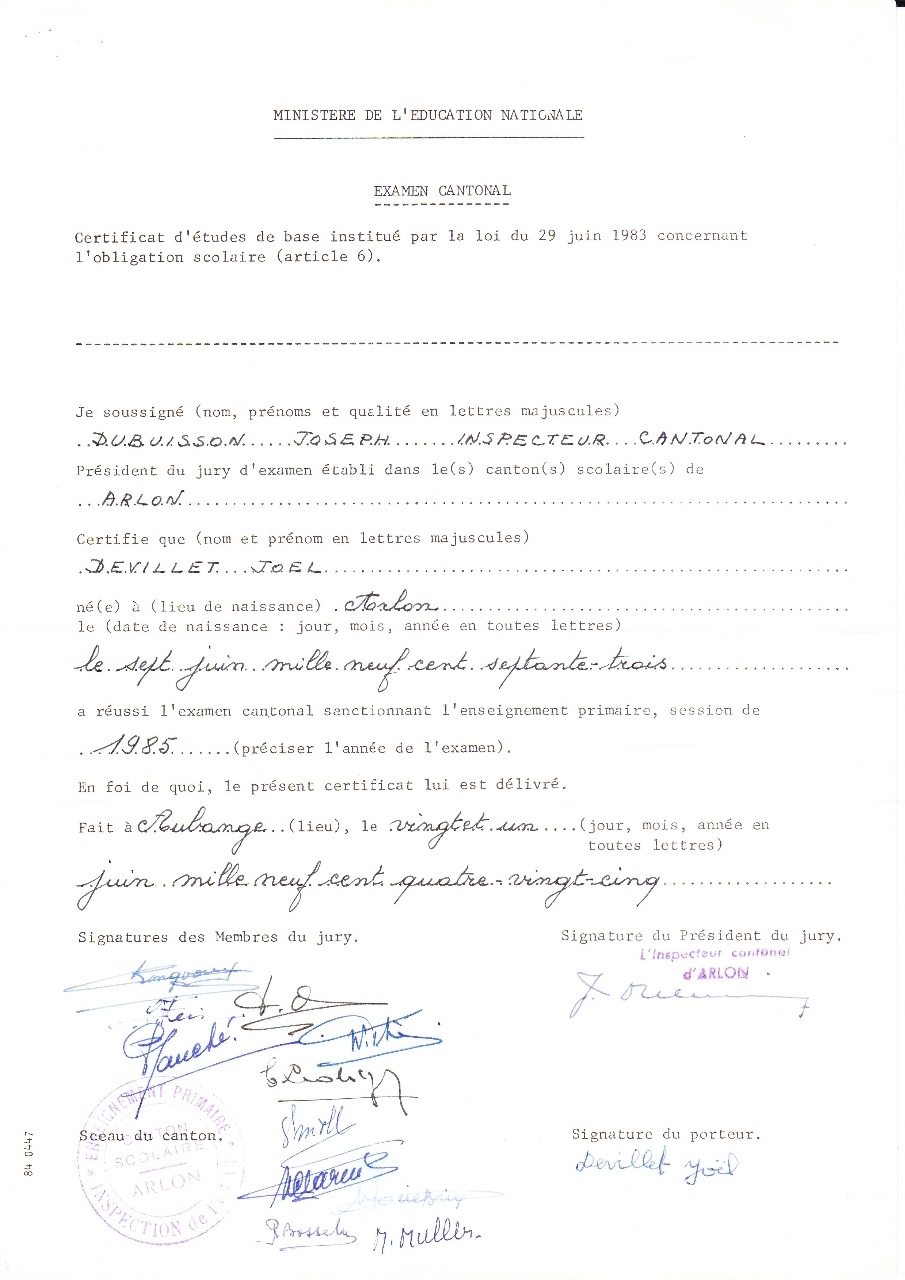 MINISTERE DE L'EDUCATION NATIONALE
EXAMEN CANTONAL
Certificat d'études de base institué par la loi du 29 juin 1983 concernant
l'obligation scolaire (article 6).
Je soussigné (nom, prénoms et qualité en lettres majuscules)
DUBUISSON JOSEPH INSPECTEUR CANTONAL
Président du jury d'examen établi dans le(s) canton(s) scolaire(s) de
ARLON
Certifie que (nom et prénom en lettres majuscules)
DEVILLET JOEL
né(e) à (lieu de naissance) Arlon
le (date de naissance : jour, mois, année en toutes lettres)
le sept juin mille neuf cent septante-trois
a réussi l'examen cantonal sanctionnant l'enseignement primaire, session de
1985 (préciser l'année de l'examen).
En foi de quoi, le présent certificat lui est délivré.
Fait à Aubange (lieu), le vingt et un (jour, mois, année en
toutes lettres)
juin mille neuf cent quatre-vingt-cinq
Signatures des Membres du jury. Signature du Président du jury.
L'Inspecteur cantonal
d'ARLON
Planché
Sceau du canton. Signature du porteur.
Devillet Joël
ENSEIGNEMENT PRIMAIRE
CANTON
SCOLAIRE
ARLON
INSPECTION de l'
M. Muller
84 0447